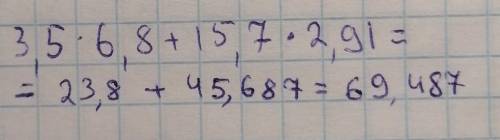 3,5 · 6,8 + 15,7 · 2,91 =
= 23,8 + 45,687 = 69,487